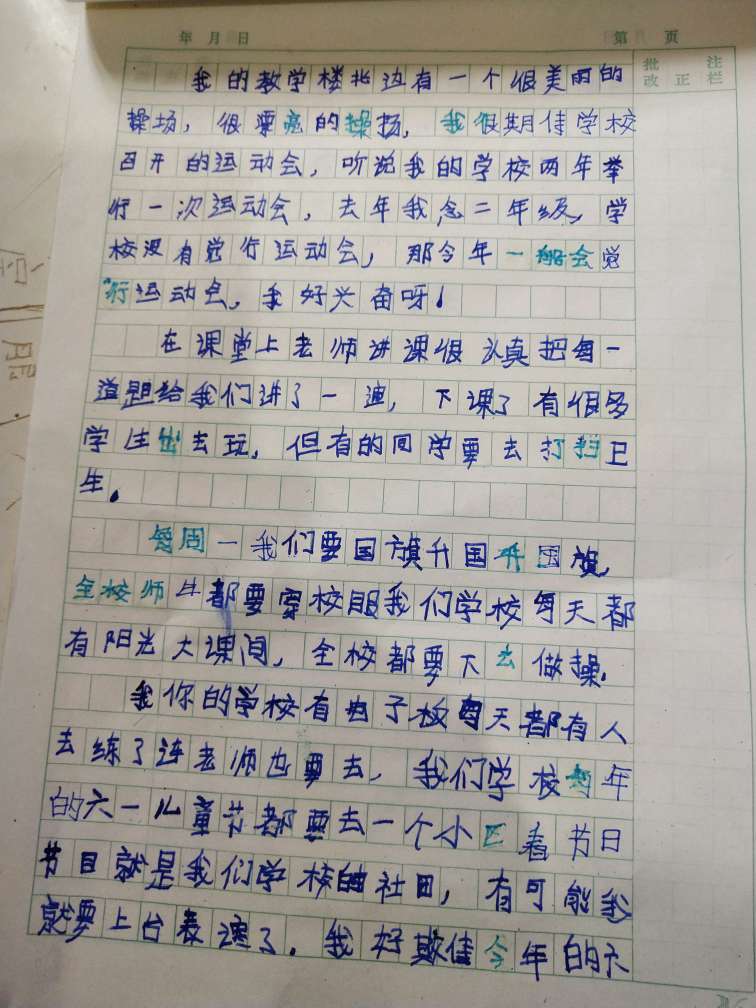 年 月 日 第 页
批改 正 注栏
我的教学楼北边有一个很美丽的
操场，很漂亮的操场，我很期待学校
召开的运动会，听说我的学校两年举
行一次运动会，去年我念二年级，学
校没有觉行运动会，那今年一般会觉
行运动会，我好兴奋呀！
在课堂上老师讲课很认真把每一
道题给我们讲了一遍，下课了有很多
学生出去玩，但有的同学要去打扫卫
生。
每周一我们要国旗升国升国旗，
全校师生都要穿校服我们学校每天都
有阳光大课间，全校都要下去做操，
我你的学校有电子板每天都有人
去练了连老师也要去，我们学校每年
的六一儿童节都要去一个小区看节日
节目就是我们学校的社团，有可能我
就要上台表演了。我好期待今年的六